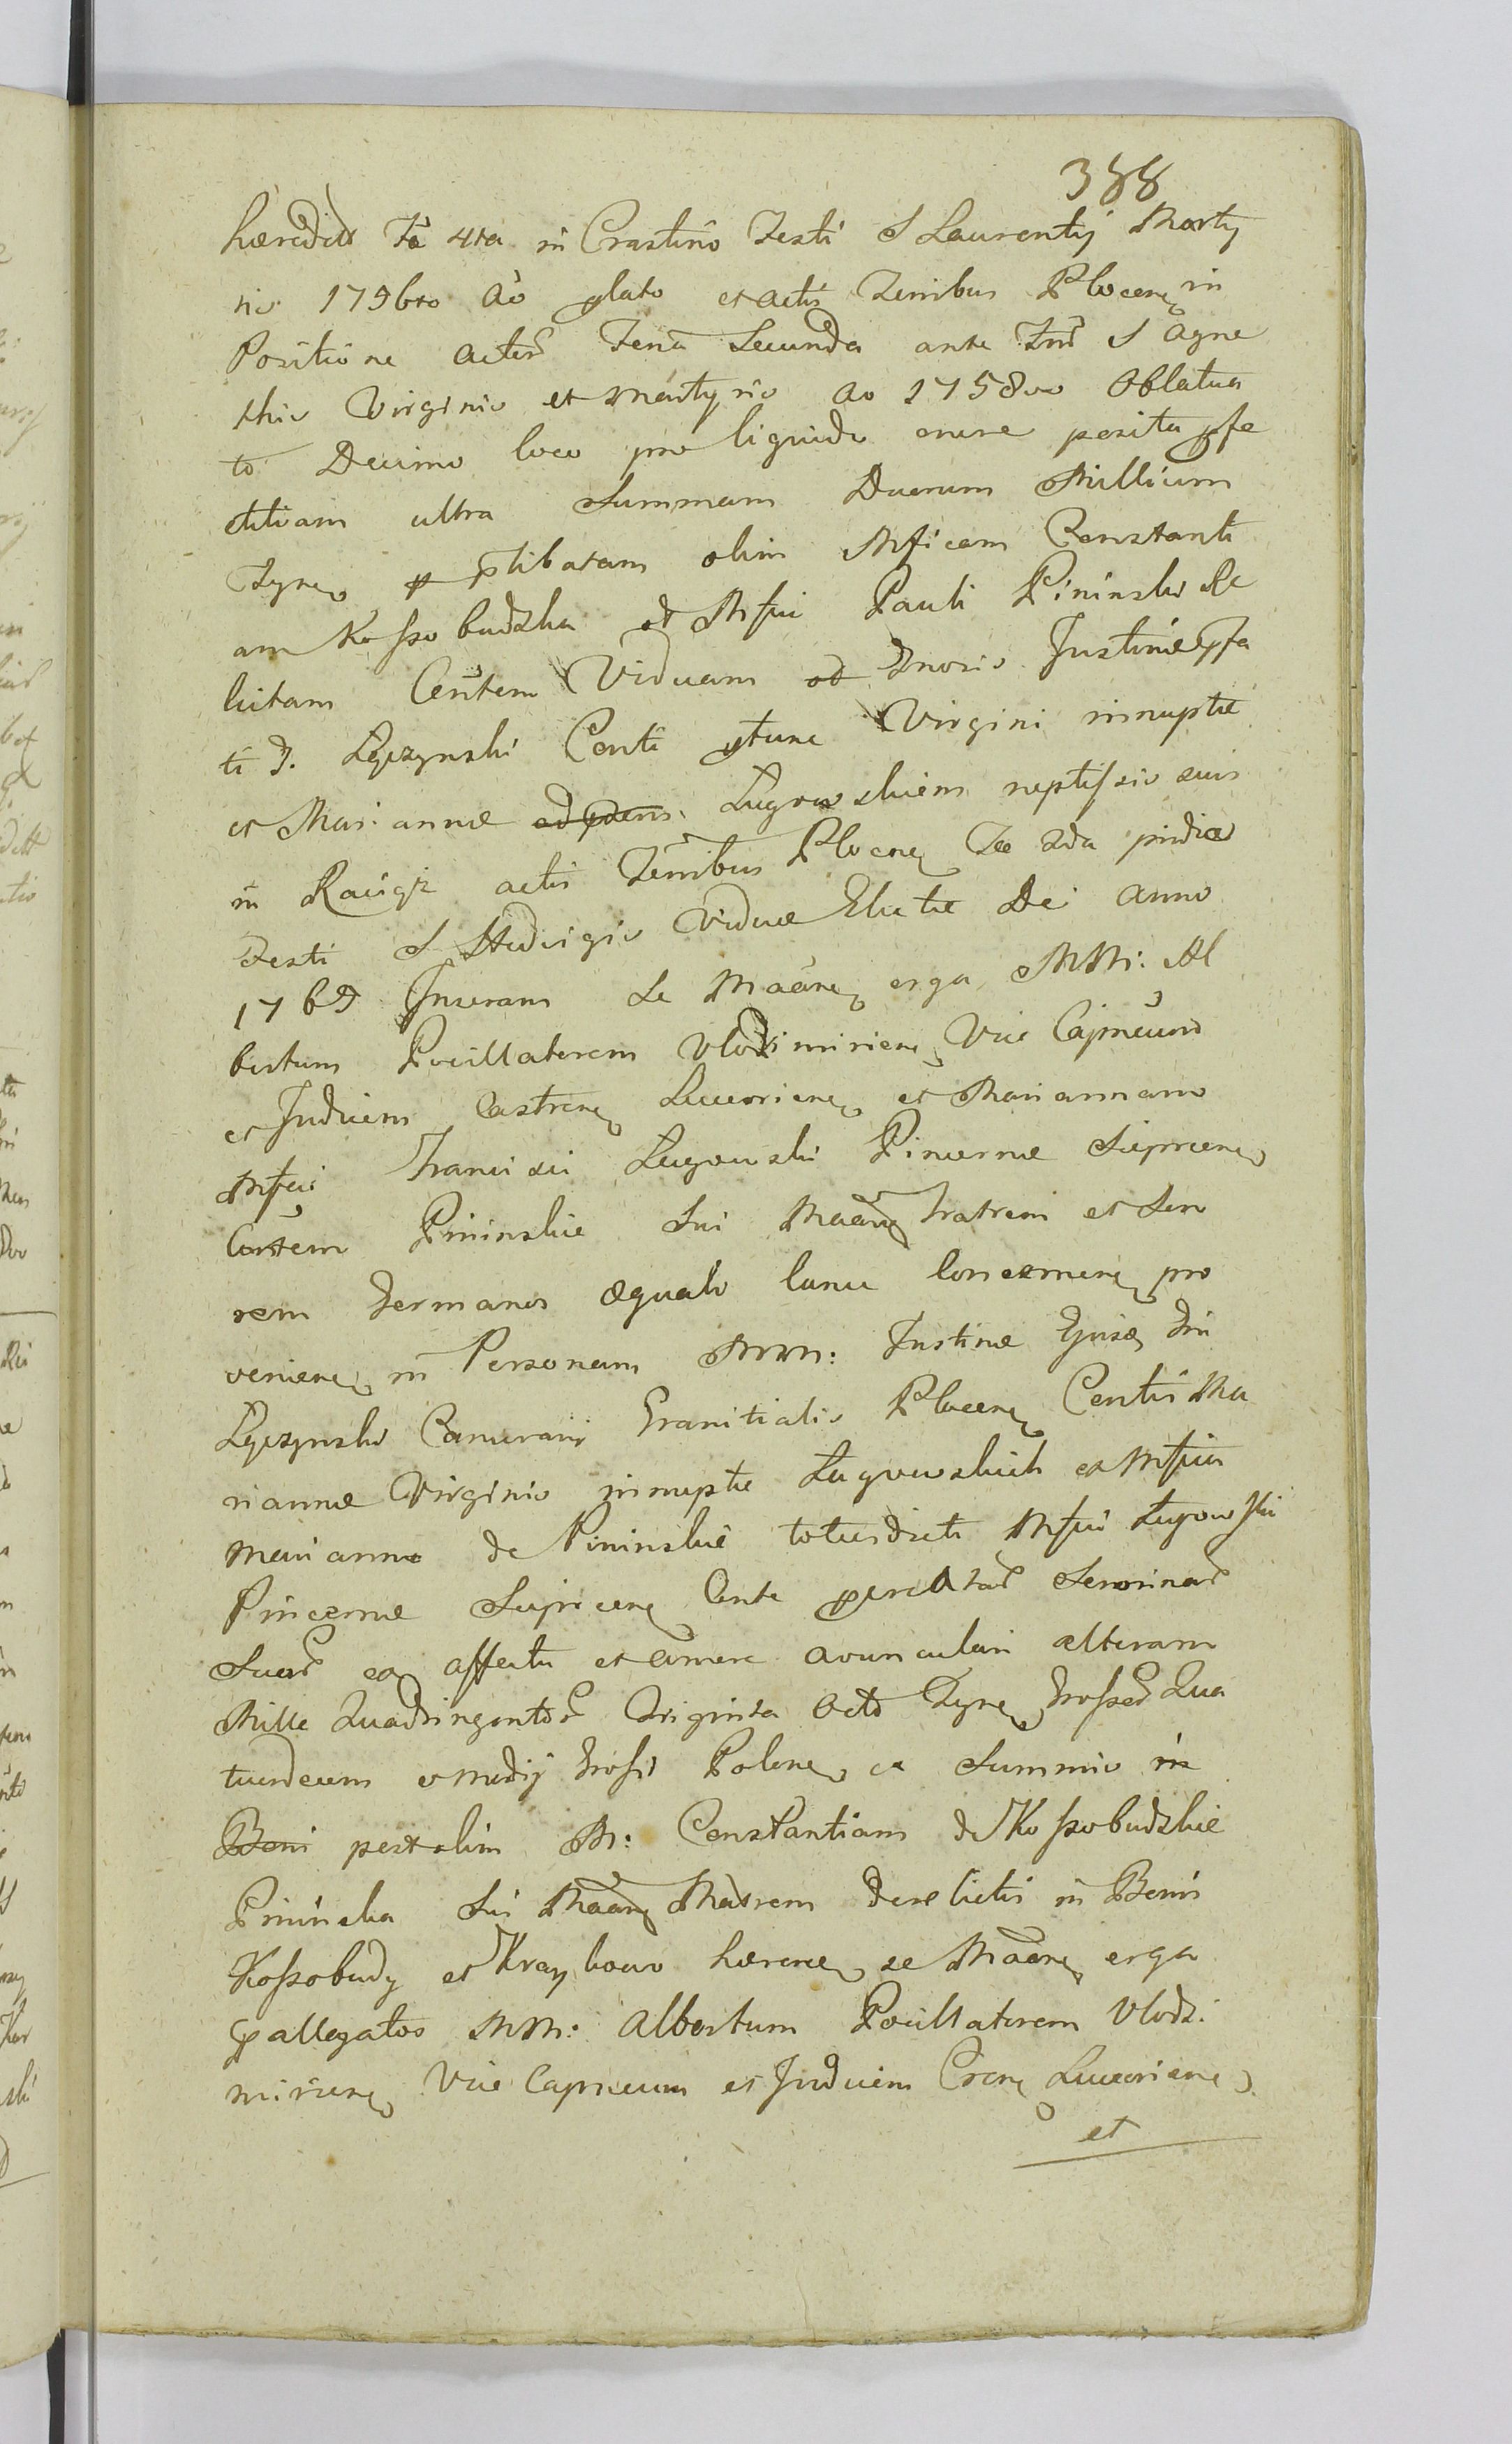 388
hæredit Fa 4ta in Crastino Festi S Laurentij Marty
ris 1756to Ao plato et actis Zemibus Plocen in
Positione actor Feria Secunda ante Fm S Agne
this Virginis et Martyris Ao 1758vo Oblatua
to Decimo loco pro liquido onere posita pfe
ctitiam ultra Summam Duorum Millium
Flynen p ptibatam olim Mficam Constanti
am Kossobudzka M fici Pauli Pininski Re
lictam Consortem Viduam Gnosis Justinæ Gfa
ti D. Łęczynski Conti ptunc Virgini innuptæ
et Mariannæ Ługowskiem neptissis suis
in Raciąż actis Zemibus Plocen Fa 2da pridie
Festi S Hedvigis Viduæ Electæ Dei anno
1769 Inseram Se Maãn erga MM: Al
bertum Pocillatorem Vlodzimirien Vice Capneum
et Judicem Castren Luceorien et Mariannam
Mfici Francisci Ługowski Pincernæ Sieprcen
Contem Pininskie Sui Maãn Fratrem et Soro
rem Germanos æquali lance concernen pro
venien in Personam MM: Justinæ Gnisi Dni
Łęczynski Camerarij Granitialis Plocen Contis Ma
riannæ Virginis innuptæ Ługowskich ex Mfica
Marianna de Pininskie toties dicti Mfici Ługowski
Pincernæ Sieprcen Conte pcreatar Sororinar
Suar ex affectu et amore avunculari alteram
Mille Quadringentor Triginta Octo Flynen Grossor Qua
tuordecim et medij Grossi Polonen ex Summis in
Bonis post olim M: Constantiam de Kossobudzkie
Pininska Sui Maãn Matrem derelictis in Bonis
Kossobudy et Kraykowo hæren se Maãn erga
pallegatos MM: Albertum Pocillatorem Vlodzi
mirien Vice Capneum et Judicem Cren Luceorien
et